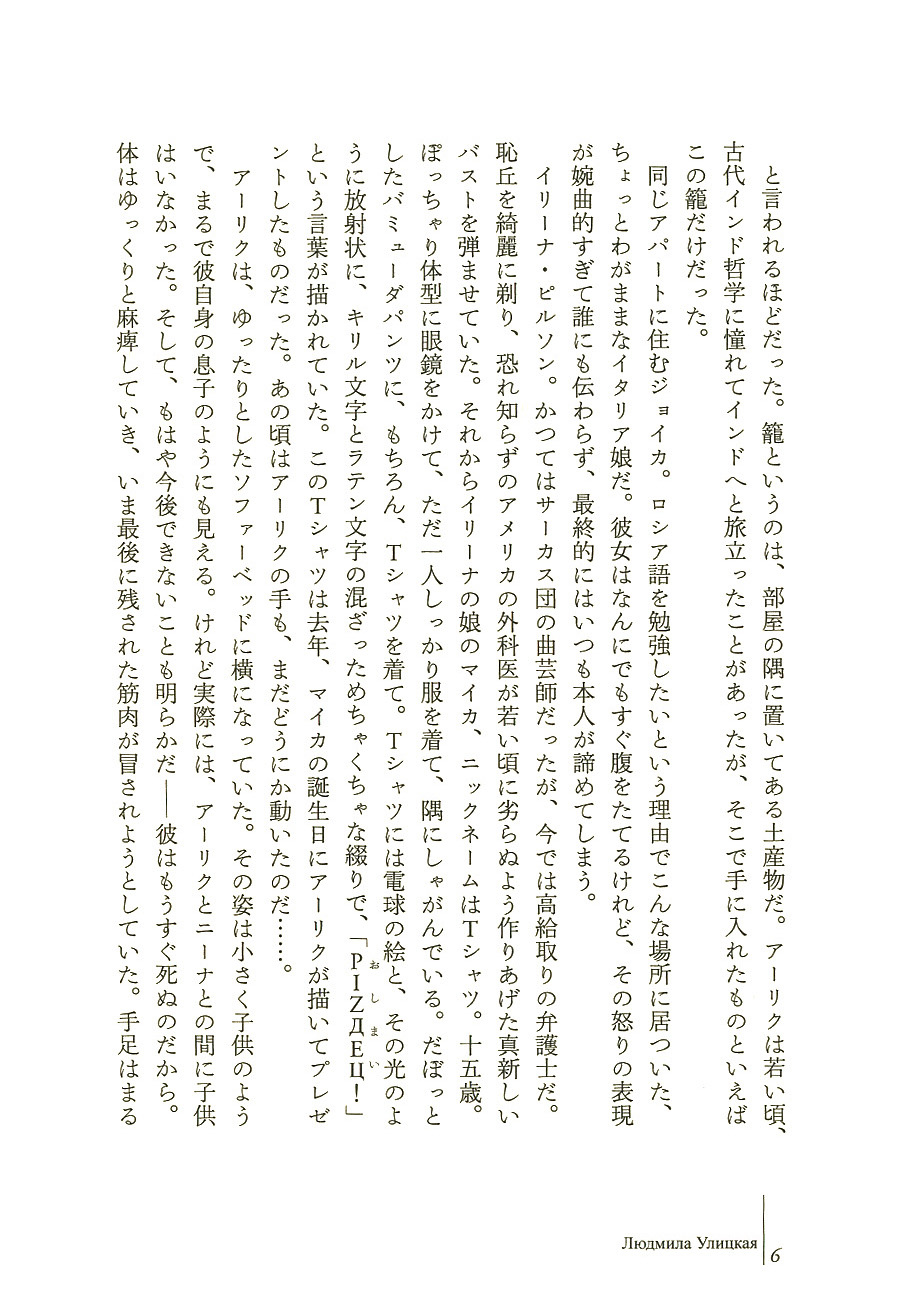 と言われるほどだった。籠というのは、部屋の隅に置いてある土産物だ。アーリクは若い頃、
古代インド哲学に憧れてインドへと旅立ったことがあったが、そこで手に入れたものといえば
この籠だけだった。
同じアパートに住むジョイカ。ロシア語を勉強したいという理由でこんな場所に居ついた、
ちょっとわがままなイタリア娘だ。彼女はなんにでもすぐ腹をたてるけれど、その怒りの表現
が婉曲的すぎて誰にも伝わらず、最終的にはいつも本人が諦めてしまう。
イリーナ・ピルソン。かつてはサーカス団の曲芸師だったが、今では高給取りの弁護士だ。
恥丘を綺麗に剃り、恐れ知らずのアメリカの外科医が若い頃に劣らぬよう作りあげた真新しい
バストを弾ませていた。それからイリーナの娘のマイカ、ニックネームはTシャツ。十五歳。
ぽっちゃり体型に眼鏡をかけて、ただ一人しっかり服を着て、隅にしゃがんでいる。だぼっと
したバミューダパンツに、もちろん、Tシャツを着て。Tシャツには電球の絵と、その光のよ
うに放射状に、キリル文字とラテン文字の混ざっためちゃくちゃな綴りで、「PIZДЕЦ!」
おしまい
という言葉が描かれていた。このTシャツは去年、マイカの誕生日にアーリクが描いてプレゼ
ントしたものだった。あの頃はアーリクの手も、まだどうにか動いたのだ……。
アーリクは、ゆったりとしたソファーベッドに横になっていた。その姿は小さく子供のよう
で、まるで彼自身の息子のようにも見える。けれど実際には、アーリクとニーナとの間に子供
はいなかった。そして、もはや今後できないことも明らかだ――彼はもうすぐ死ぬのだから。
体はゆっくりと麻痺していき、いま最後に残された筋肉が冒されようとしていた。手足はまる
Людмила Улицкая
6